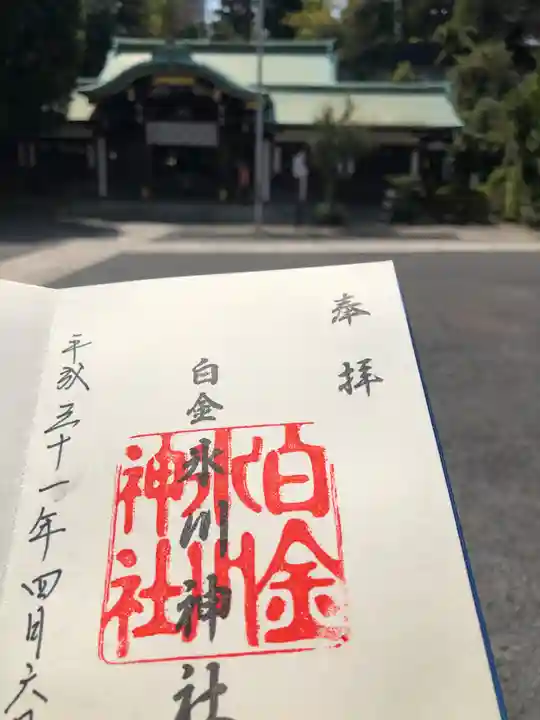 奉拝
白金氷川神社
白金氷川神社
平成三十一年四月六日